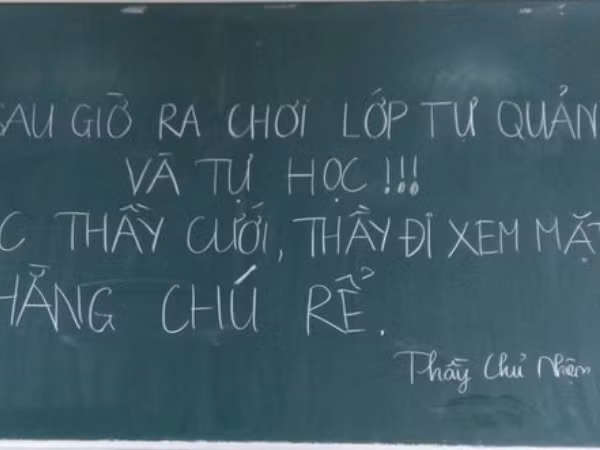 SAU GIỜ RA CHƠI LỚP TỰ QUẢN
VÀ TỰ HỌC !!!
C THẦY CƯỚI, THẦY ĐI XEM MẶT
HẰNG CHÚ RỂ.
Thầy Chủ Nhiệm